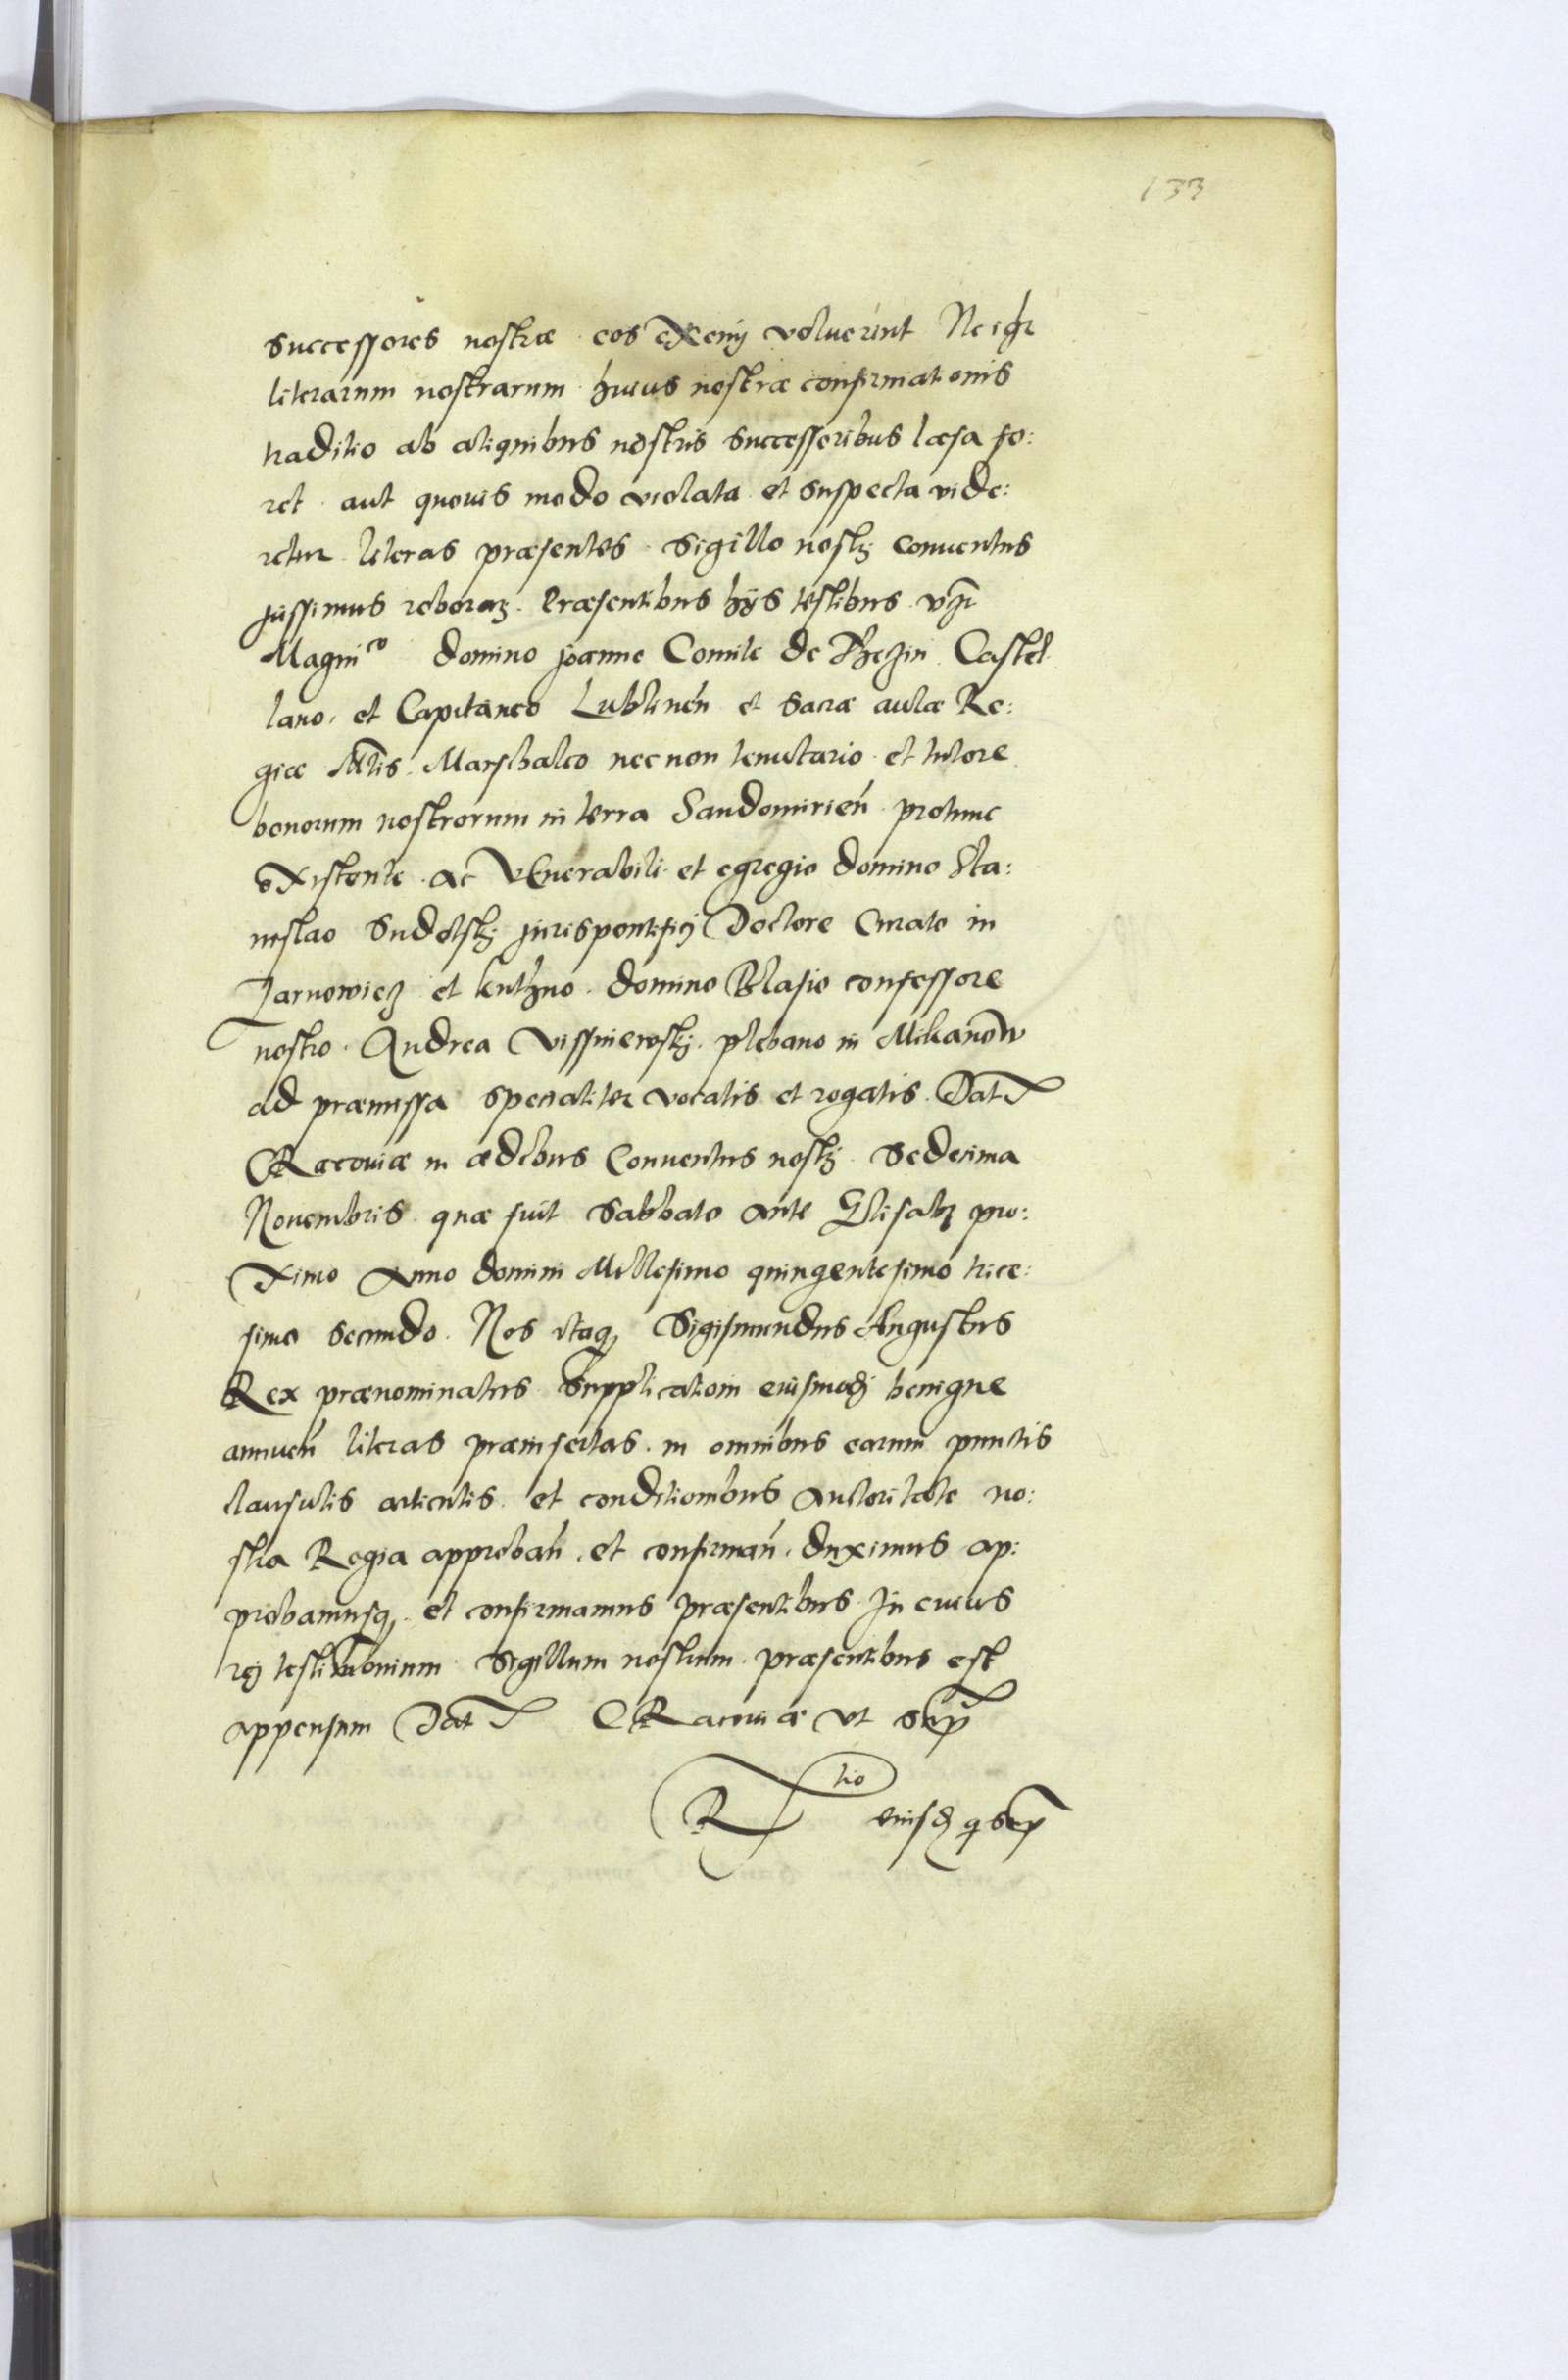 133
successores nostræ eos exemi voluerint Ne igr
literarum nostrarum huius nostræ confirmationis
traditio ab aliquibus nostris successoribus læsa fo:
ret aut quovis modo violata et suspecta vide:
retur literas præsentes Sigillo nostrj conventus
jussimus roboraz. Præsentibus hijs testibus vzr
Magnico domino joanne Comite de Thezin Castel
lano, et Capitaneo Lublinen et sacræ aulæ Re:
giæ Mtis Marschalco nec non tenutario et tutore
bonorum nostrorum in terra Sandomirien protunc
existente ac Venerabili et egregio domino Sta:
nislao Sudolskj jurispontificij Doctore Curato in
Zarnowiecz et domino Blasio confessore
nostro Andrea Vissniewskj plebano in Mikanow
ad præmissa specialiter vocatis et rogatis. Dat
CRacoviæ in ædibus Conventus nostrj Sedecima
Novembris quæ fuit Sabbato ante Elisabz pro:
ximo Anno domini Millesimo quingentesimo trice:
simo secundo. Nos itaq Sigismundus Augustus
Rex prænominatus Supplicationi eiusmodj benigne
annuen literas præinsertas in omnibus earum punctis
clausulis articulis et conditionibus Autoritate no:
stra Regia approban et confirman duximus ap:
probamusq et confirmamus præsentibus In cuius
rej testimonium Sigillum nostrum præsentibus est
appensum Dat CRacoviæ ut sup
R tio eiusd q sup